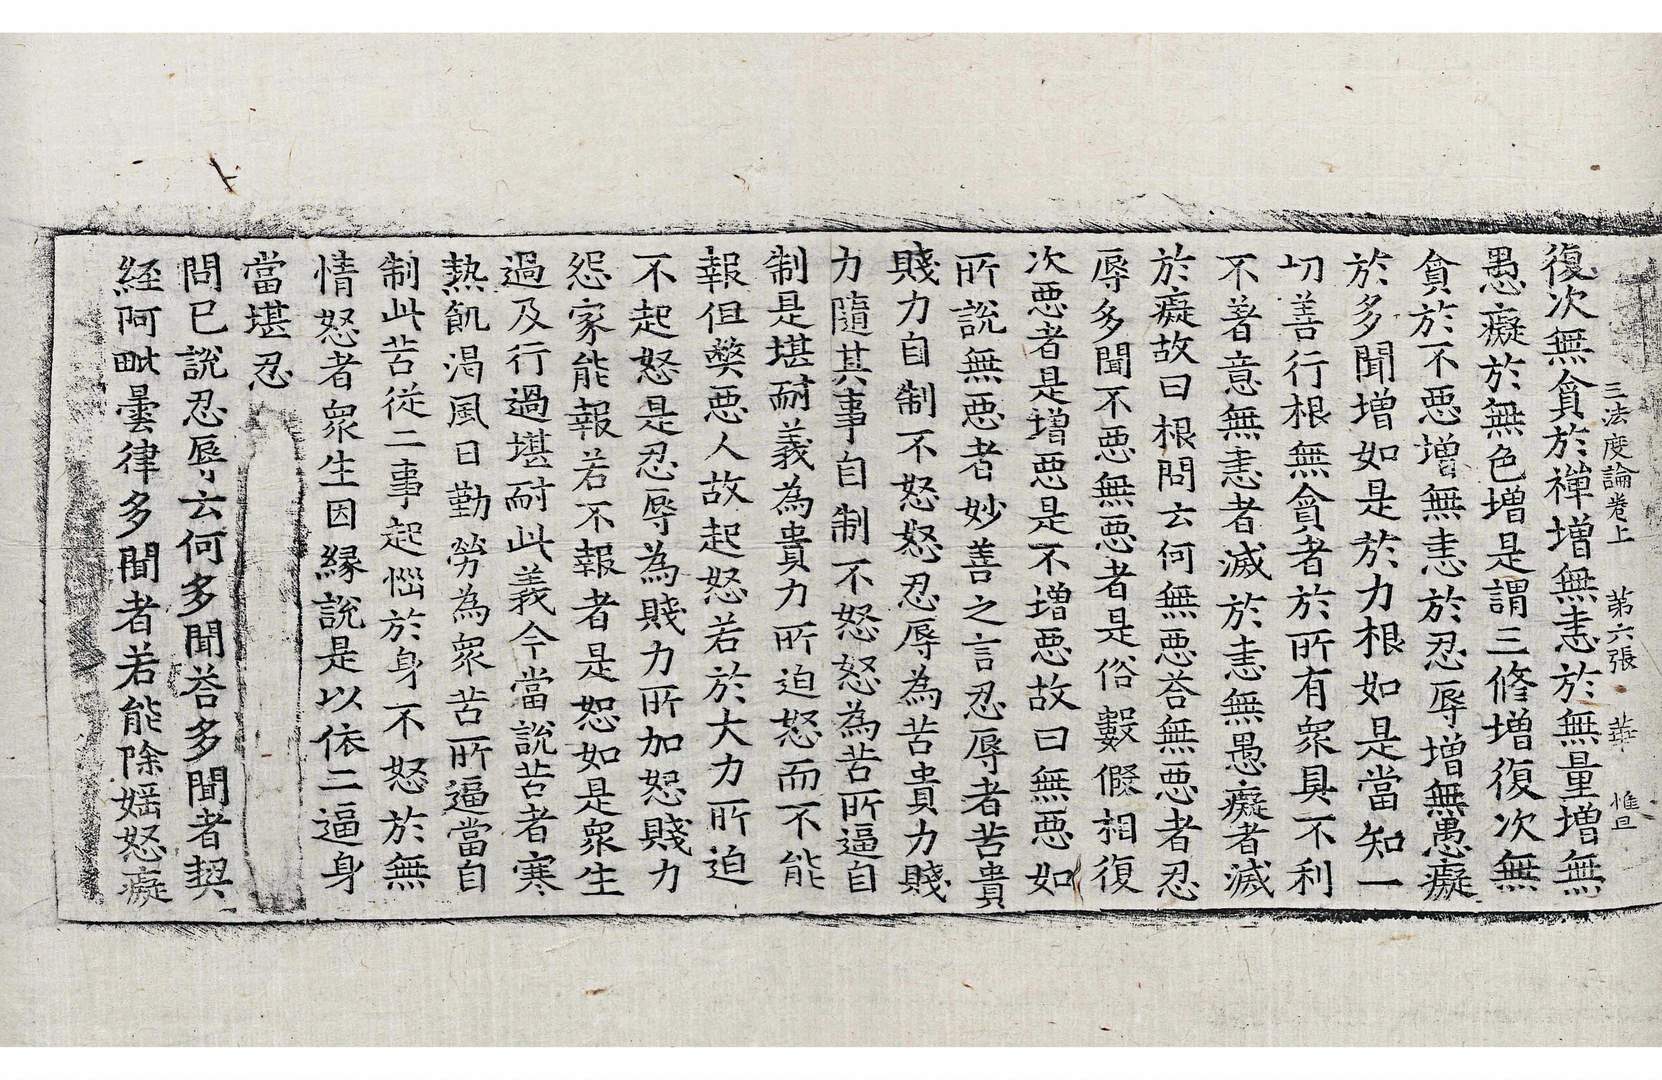 三法度論卷上 第六張 華 惟旦
復次無貪於禪增無恚於無量增無
愚癡於無色增是謂三修增復次無
貪於不惡增無恚於忍辱增無愚癡
於多聞增如是於力根如是當知一
切善行根無貪者於所有衆具不利
不著意無恚者滅於恚無愚癡者滅
於癡故曰根問云何無惡荅無惡者忍
辱多聞不惡無惡者是俗數假相復
次惡者是增惡是不增惡故曰無惡如
所說無惡者妙善之言忍辱者苦貴
賤力自制不怒怒忍辱為苦貴力賤
力隨其事自制不怒怒為苦所逼自
制是堪耐義為貴力所迫怒而不能
報但獘惡人故起怒若於大力所迫
不起怒是忍辱為賤力所加怒賤力
怨家能報若不報者是恕如是衆生
過及行過堪耐此義今當說苦者寒
熱飢渴風日勤勞為衆苦所逼當自
制此苦從二事起惱於身不怒於無
情怒者衆生因緣說是以依二逼身
當堪忍
問已說忍辱云何多聞荅多聞者契
経阿毗曇律多聞者若能除婬怒癡